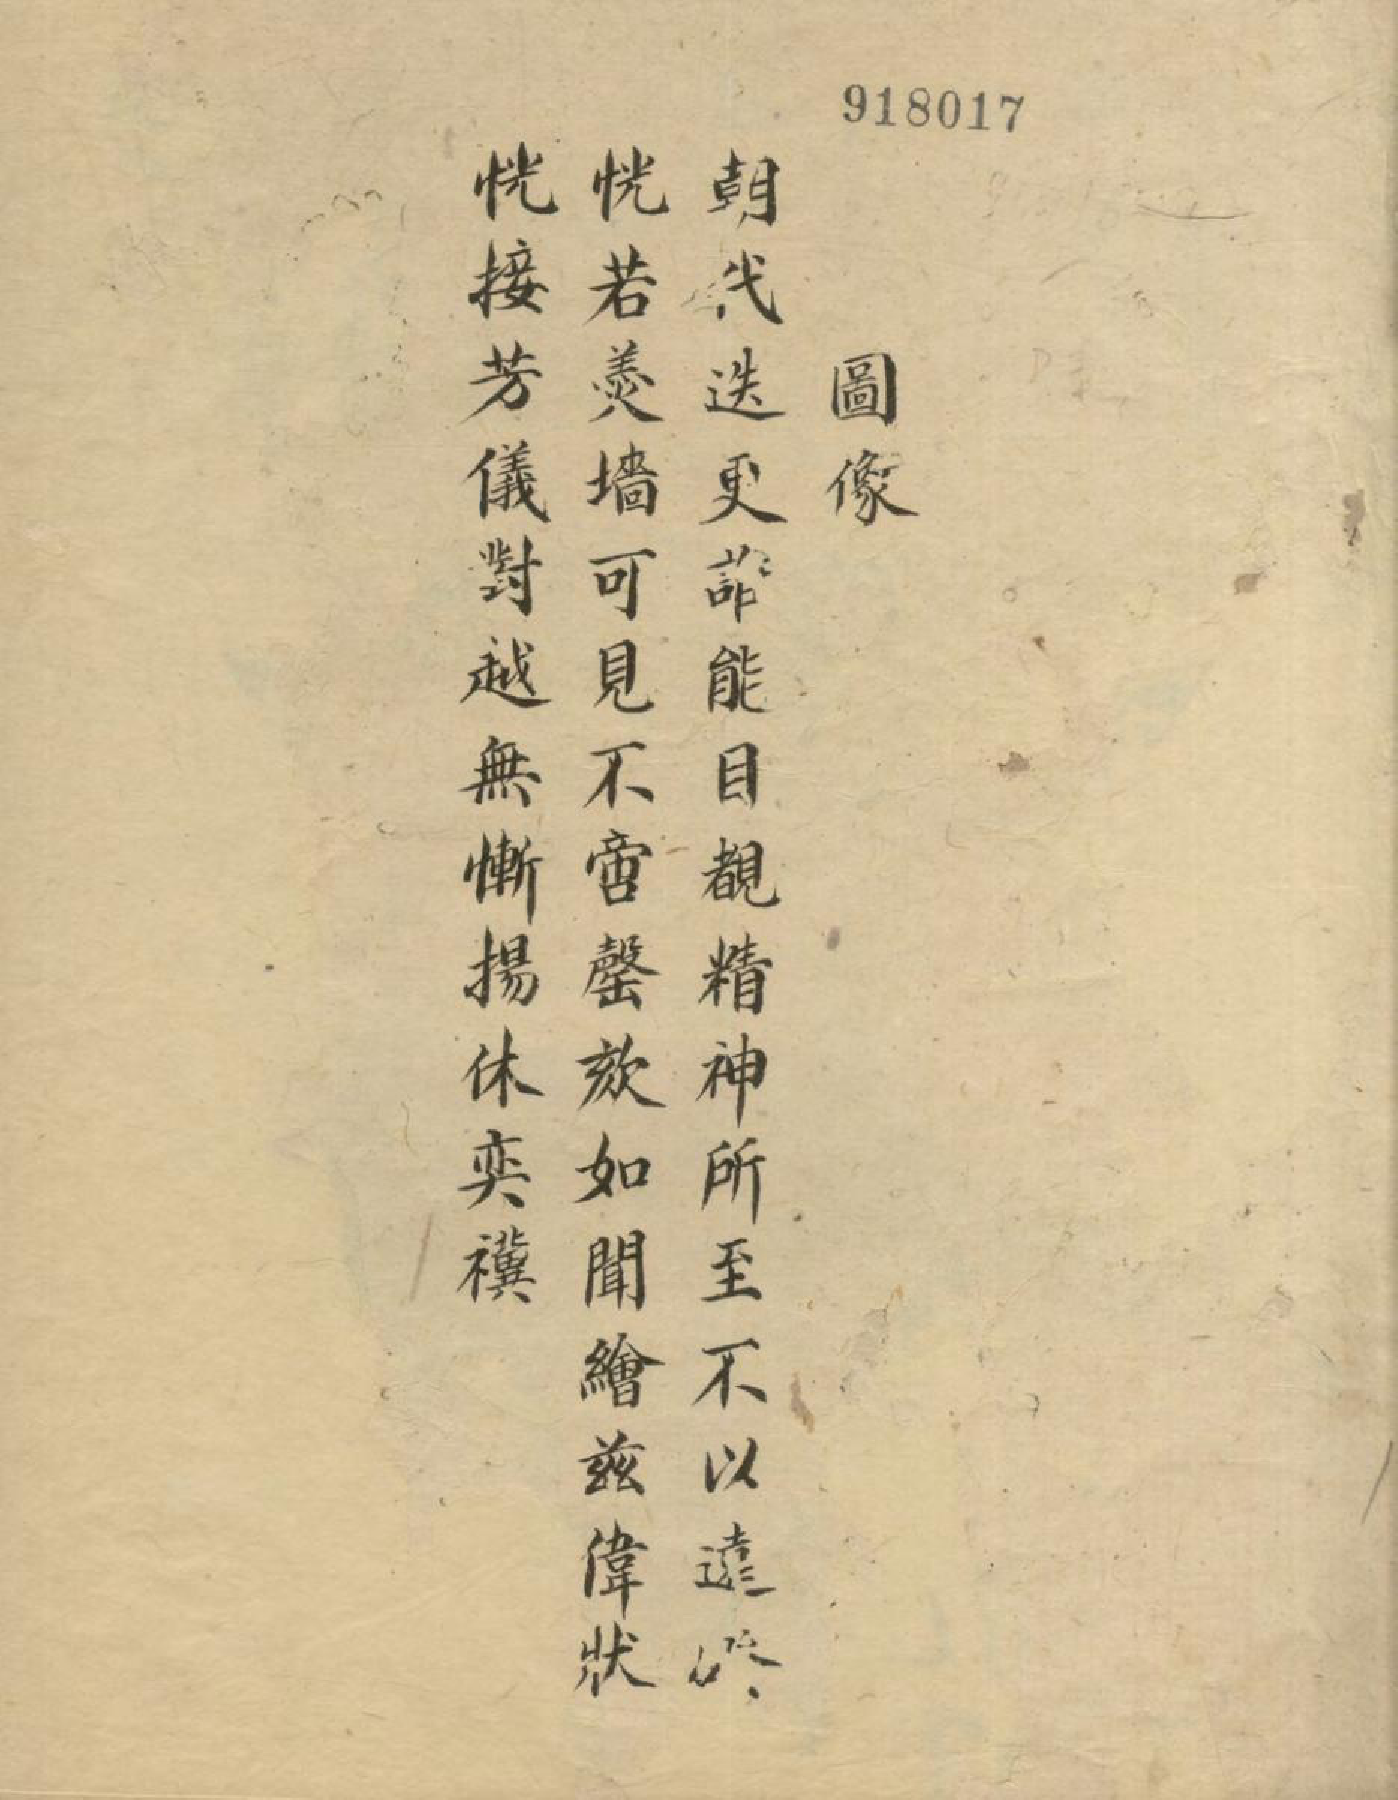 918017
圖像
朝代迭更能目覩精神所至不以遠
恍若羮墻可見不啻罄欬如聞繪茲偉狀
恍接芳儀對越無慚揚休奕禩